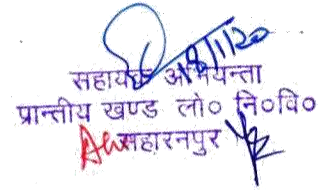 18/1/20
सहायक अभियन्ता
प्रान्तीय खण्ड लो० नि०वि०
सहारनपुर